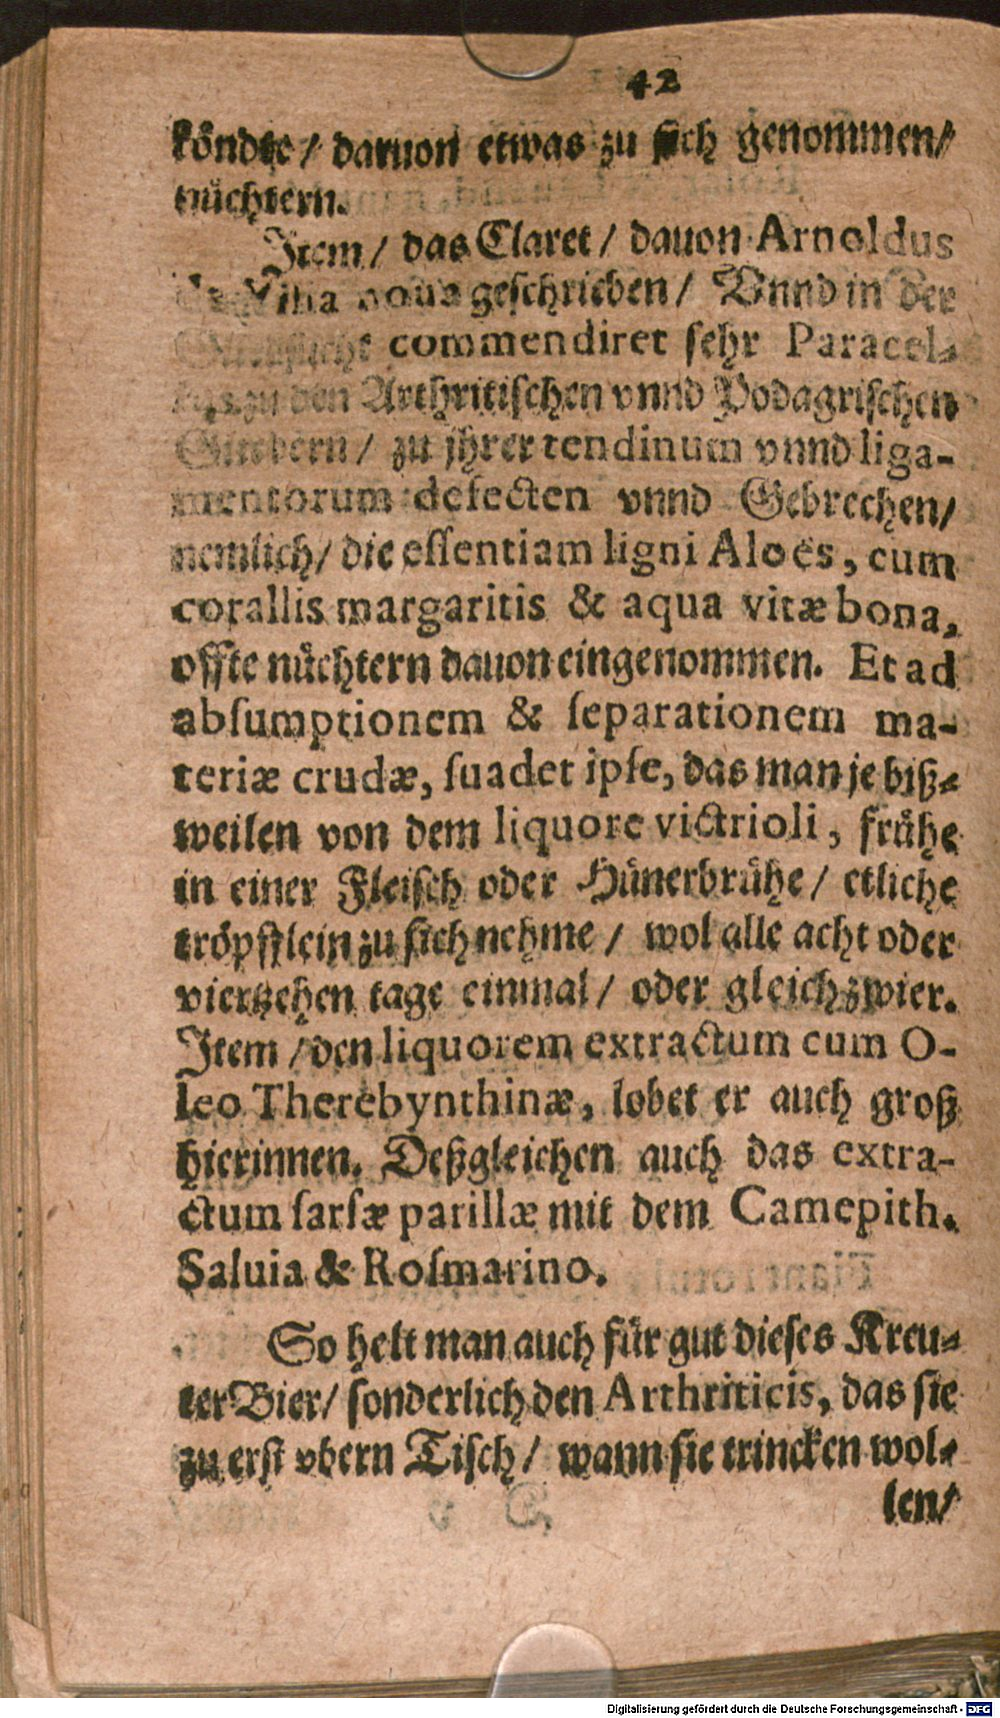 42
köndte / daruon etwas zu sich genommen/
nüchtern.
Item / das Claret / dauon Arnoldus
de Villa noua geschrieben / Vnnd in der
commendiret sehr Paracel-
sus zu den Arthritischen vnnd Podagrischen
Gliedern / zu jhrer tendinum vnnd liga-
mentorum defecten vnnd Gebrechen/
nemlich/ die essentiam ligni Aloës, cum
corallis margaritis & aqua vitæ bona,
offte nüchtern dauon eingenommen. Et ad
absumptionem & separationem ma-
teriæ crudæ, suadet ipse, das man je biß-
weilen von dem liquore victrioli, frühe
in einer Fleisch oder Hünerbrühe / etliche
tröpfflein zu sich nehme / wol alle acht oder
viertzehen tage einmal / oder gleich zwier.
Item / den liquorem extractum cum O-
leo Therebynthinæ, lobet er auch groß
hierinnen. Deßgleichen auch das extra-
ctum sarsæ parillæ mit dem Camepith.
Saluia & Rosmarino.
So helt man auch für gut dieses Kreu-
ter Bier/ sonderlich den Arthriticis, das sie
zu erst vbern Tisch / wann sie trincken wol-
len/
Digitalisierung gefördert durch die Deutsche Forschungsgemeinschaft - DFG